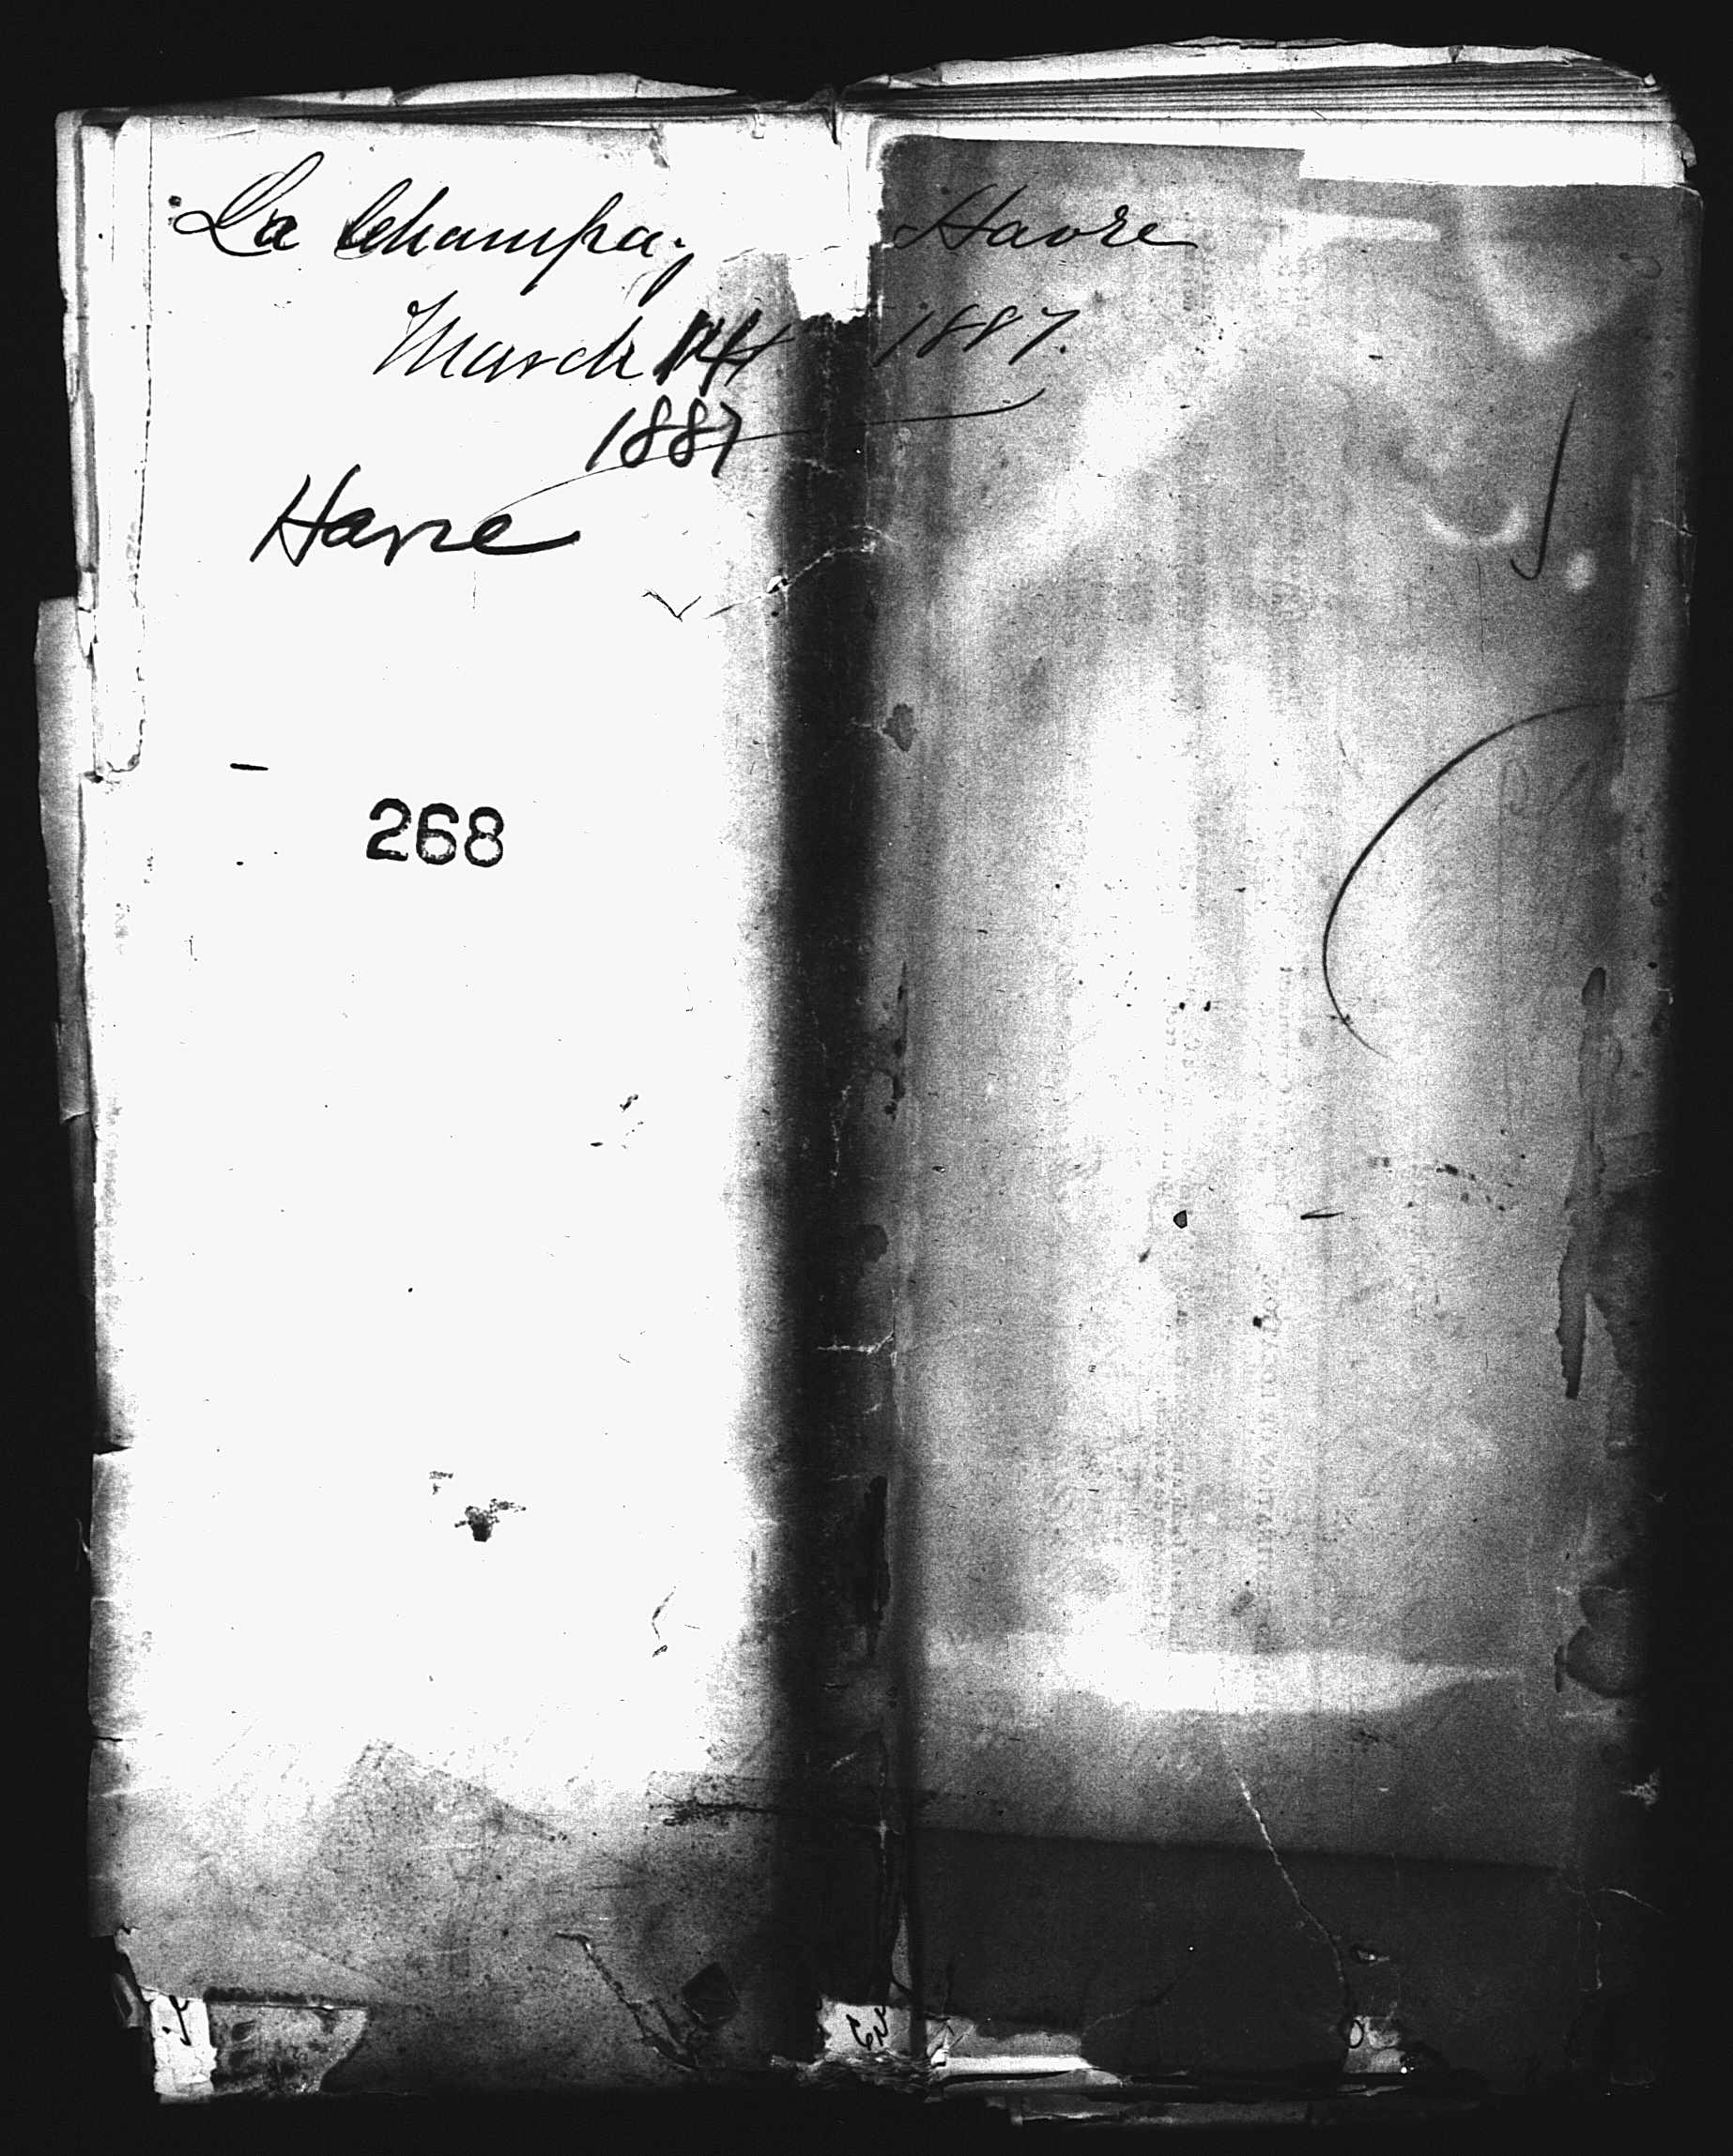 La Champag Havre
March 14 1887.
1887
Havre
268